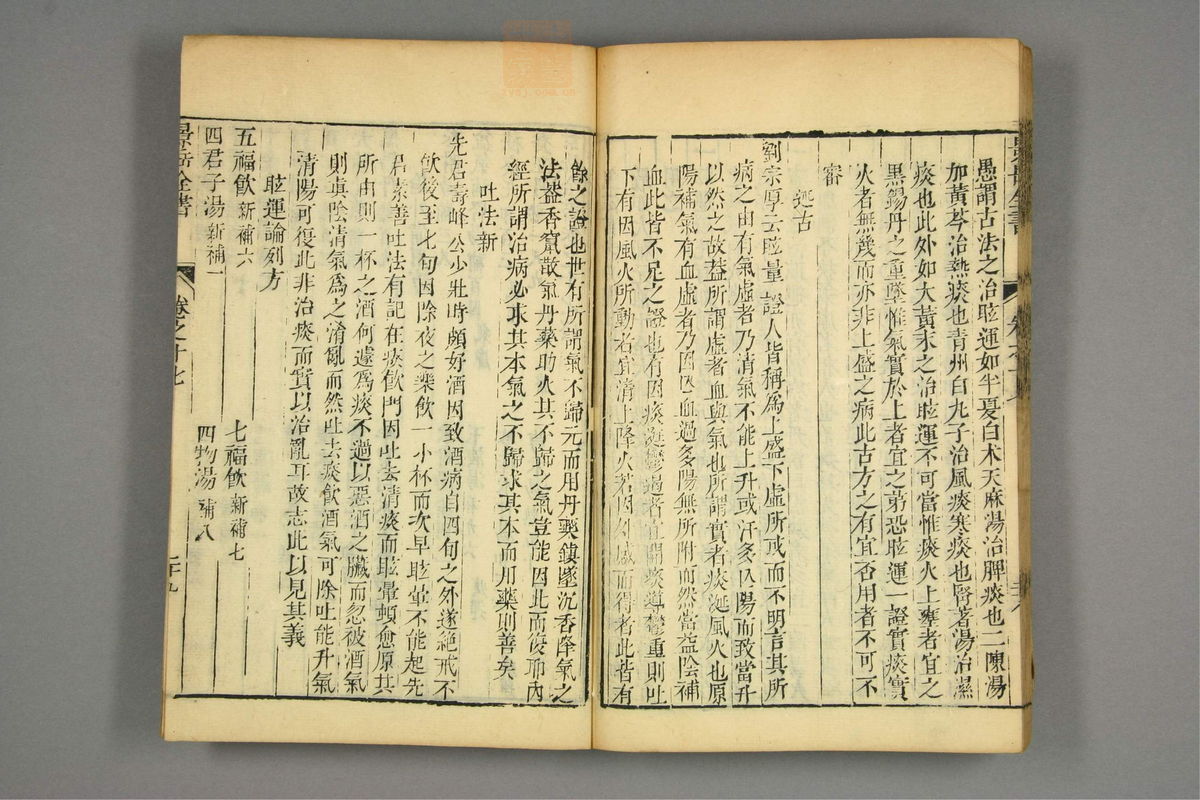 愚謂古法之治眩運如半夏白术天麻湯治脾痰也二陳湯
加黃芩治熱痰也青州白丸子治風痰寒痰也腎著湯治濕
痰也此外如大黃末之治眩運不可當惟痰火上壅者宜之
黑錫丹之重墜惟氣實於上者宜之第恐眩運一證實痰實
火者無幾而亦非上盛之病此古方之有宜否用者不可不
審
述古
劉宗厚云眩暈證人皆稱為上盛下虛所或而不明言其所
病之由有氣虛者乃清氣不能上升或汗多亡陽而致當升
以然之故葢所謂虛者血與氣也所謂實者痰涎風火也原
陽補氣有血虛者乃因亡血過多陽無所附而然當益陰補
血此皆不足之證也有因痰涎鬱遏者宜開痰導鬱重則吐
下有因風火所動者宜清上降火若因外感而得者此皆有
餘之證也世有所謂氣不歸元而用丹藥鎮墜沉香降氣之
法葢香竄散氣丹藥助火其不歸之氣豈能因此而復耶內
經所謂治病必求其本氣之不歸求其本而用藥則善矣
吐法新
先君壽峰公少壯時頗好酒因致酒病自四旬之外遂絕戒不
飲後至七旬因除夜之樂飲一小杯而次早眩暈不能起先
君素善吐法有記在痰飲門因吐去清痰而眩暈頓愈原其
所由則一杯之酒何遽為痰不過以惡酒之臟而忽被酒氣
則真陰清氣為之淆亂而然吐去痰飲酒氣可除吐能升氣
清陽可復此非治痰而實以治亂耳故志此以見其義
眩運論列方
五福飲 新補六 七福飲 新補七
四君子湯 新補一 四物湯 補八
景岳全書 卷之十七 二十九